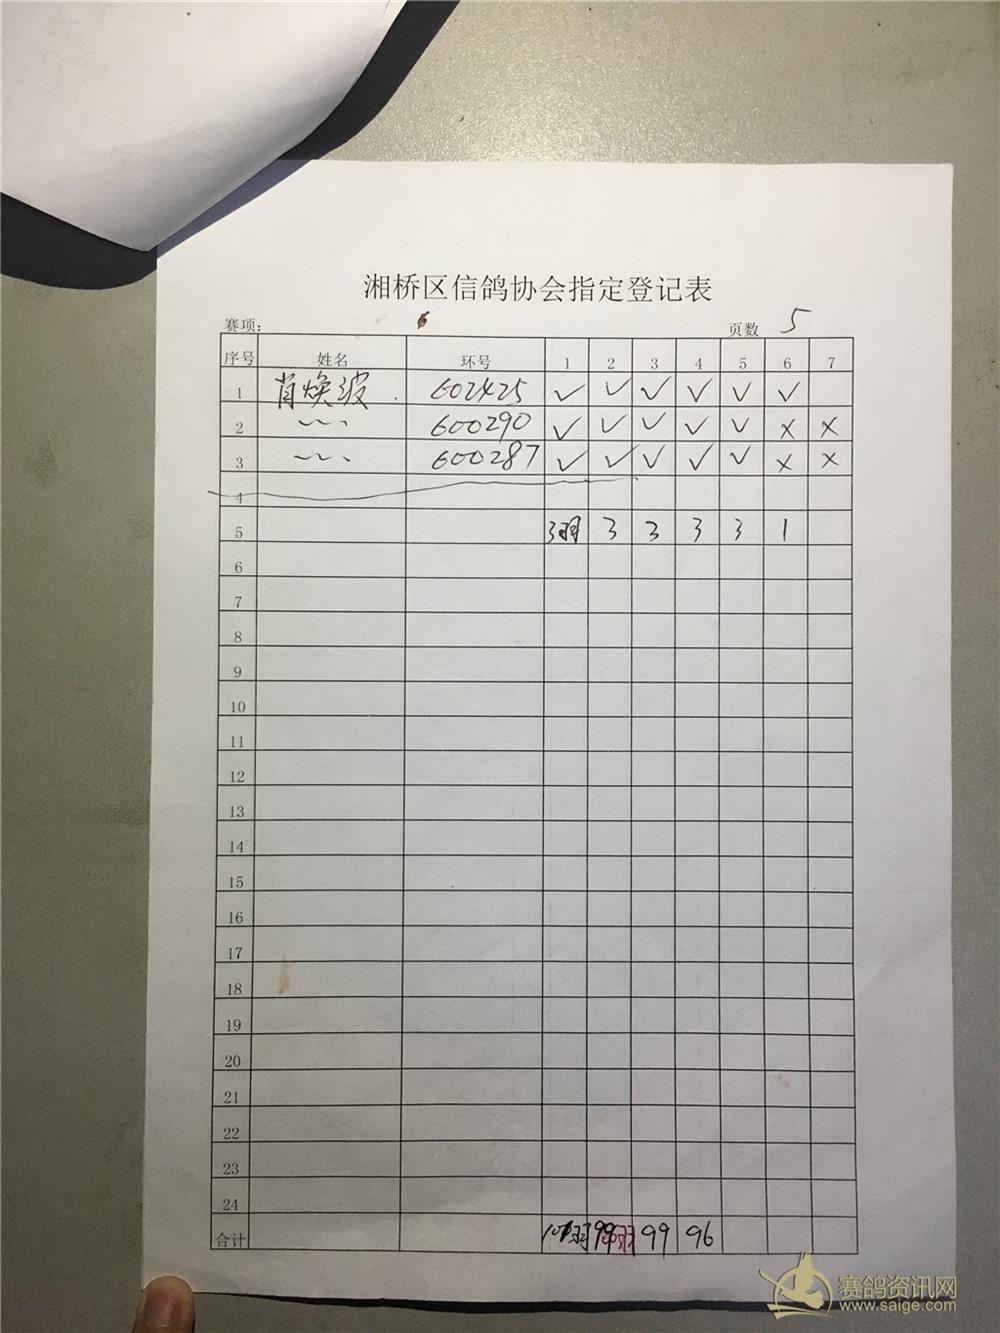 湘桥区信鸽协会指定登记表
赛项: 页数 5
序号 姓名 环号 1 2 3 4 5 6 7
1 肖焕波 602425 ✓ ✓ ✓ ✓ ✓ ✓
2 〃 600290 ✓ ✓ ✓ ✓ ✓ × ×
3 〃 600287 ✓ ✓ ✓ ✓ ✓ × ×
4
5 3羽 3 3 3 3 1
6
7
8
9
10
11
12
13
14
15
16
17
18
19
20
21
22
23
24
合计 99 96
赛鸽资讯网
www.saige.com